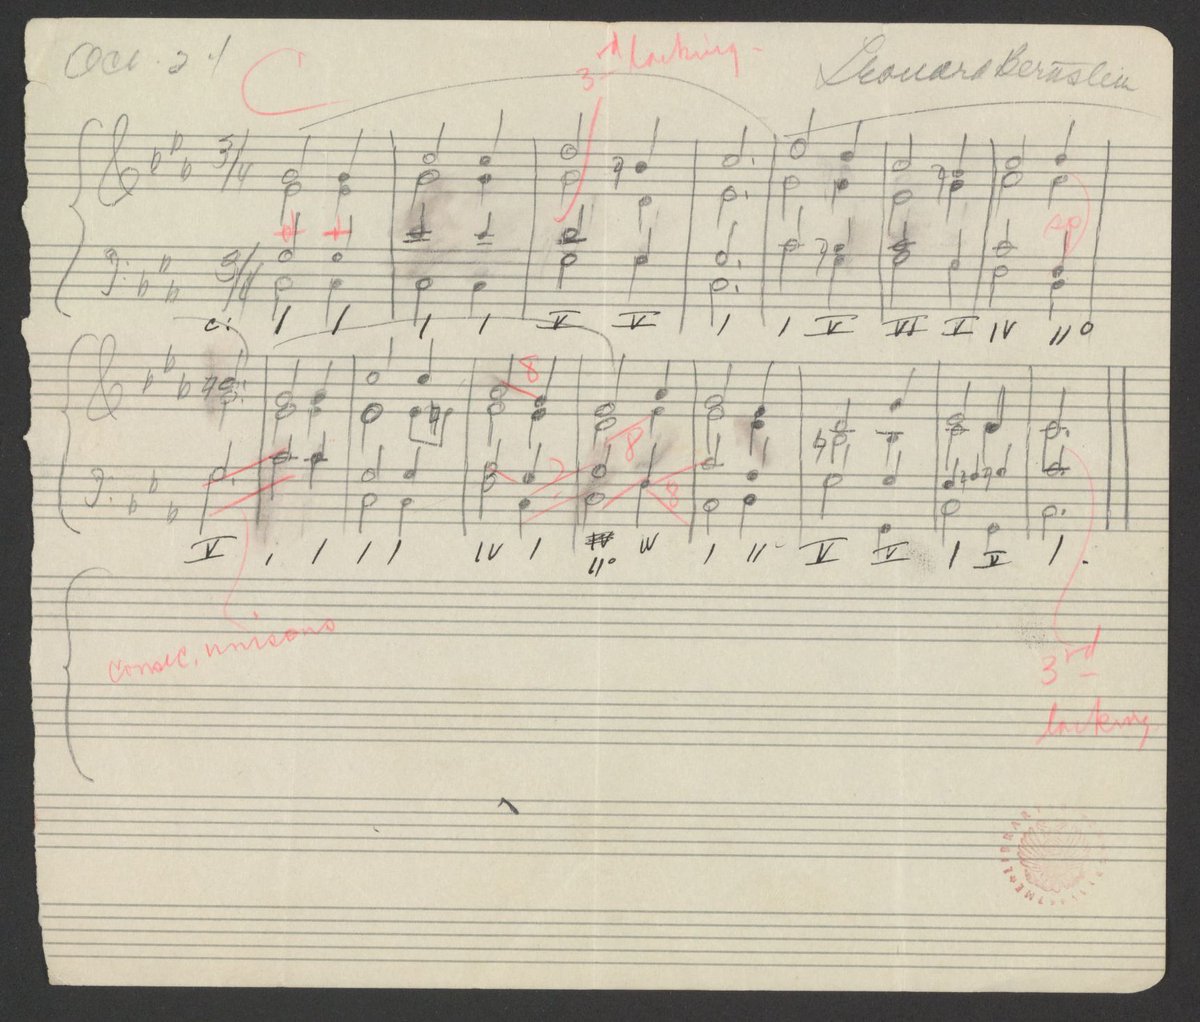 Oct. 21
C
3rd lacking
Leonard Bernstein
3/4
3/4
sp
c: I I I I V V I I V VI V IV II°
8
8
8
V I I I I IV I II° IV I II V V I V I.
consec. unisons
3rd
lacking